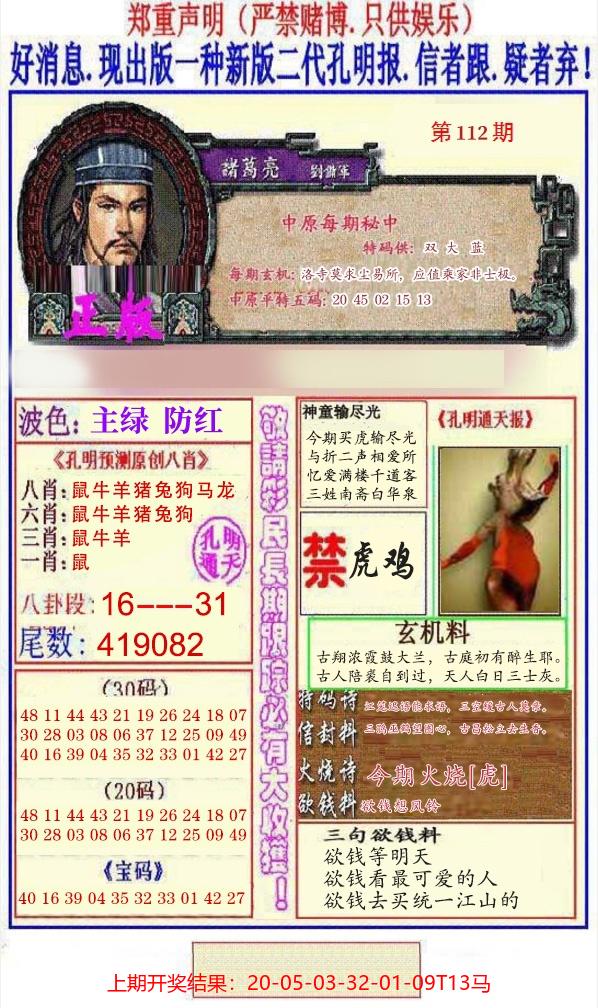 郑重声明（严禁赌博.只供娱乐）
好消息.现出版一种新版二代孔明报.信者跟.疑者弃！
第112期
諸葛亮 劉備軍
中原每期秘中
特码供：双 大 蓝
每期玄机：洛寺莫求尘易所，应值乘家非士极。
中原平特五码：20 45 02 15 13
正版
波色：主绿 防红
《孔明预测原创八肖》
八肖：鼠牛羊猪兔狗马龙
六肖：鼠牛羊猪兔狗
三肖：鼠牛羊
一肖：鼠
孔明
通天
八卦段：16---31
尾数：419082
（30码）
48 11 44 43 21 19 26 24 18 07
30 28 03 08 06 37 12 25 09 49
40 16 39 04 35 32 33 01 42 27
（20码）
48 11 44 43 21 19 26 24 18 07
30 28 03 08 06 37 12 25 09 49
《宝码》
40 16 39 04 35 32 33 01 42 27
敬請彩民長期跟踪必有大收獲！
神童输尽光
今期买虎输尽光
与折二声相爱所
忆爱满楼千道客
三姓南斋白华泉
《孔明通天报》
禁虎鸡
玄机料
古翔浓霞鼓大兰，古庭初有醉生耶。
古人陪裘自到过，天人白日三士灰。
特码诗
信封料
火烧诗 今期火烧[虎]
欲钱料 欲钱想风铃
三句欲钱料
欲钱等明天
欲钱看最可爱的人
欲钱去买统一江山的
上期开奖结果：20-05-03-32-01-09T13马